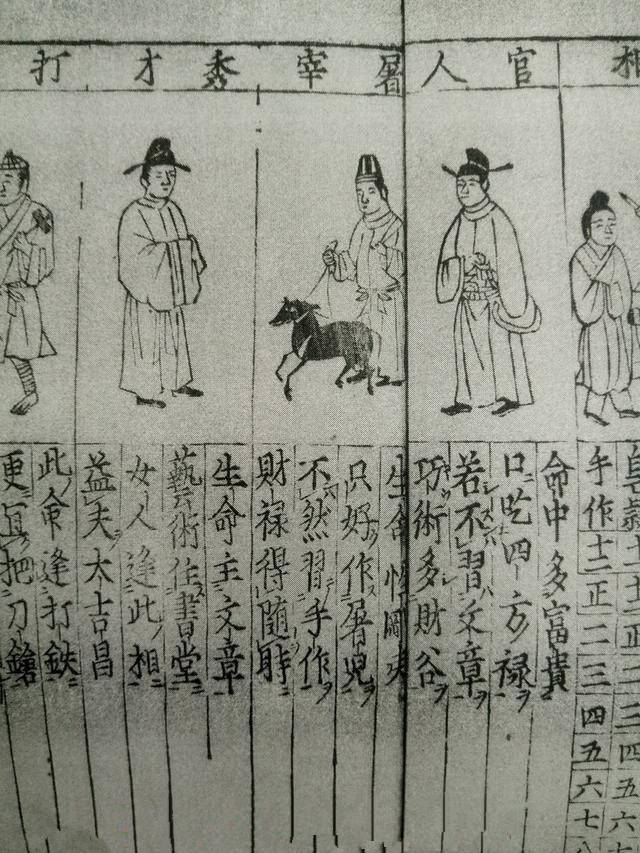 相
官人
屠宰
秀才
打
皂隸十一十二正二三四五六
手作十二正二三四五六七
命中多富貴
口吃四方禄
若不習文章
巧術多財谷
生含性剛
只好作屠兒
不然習手作
財禄得随時
生命主文章
藝術住書堂
女人逢此相
益夫太吉昌
此命逢打鉄
更宜把刀鎗